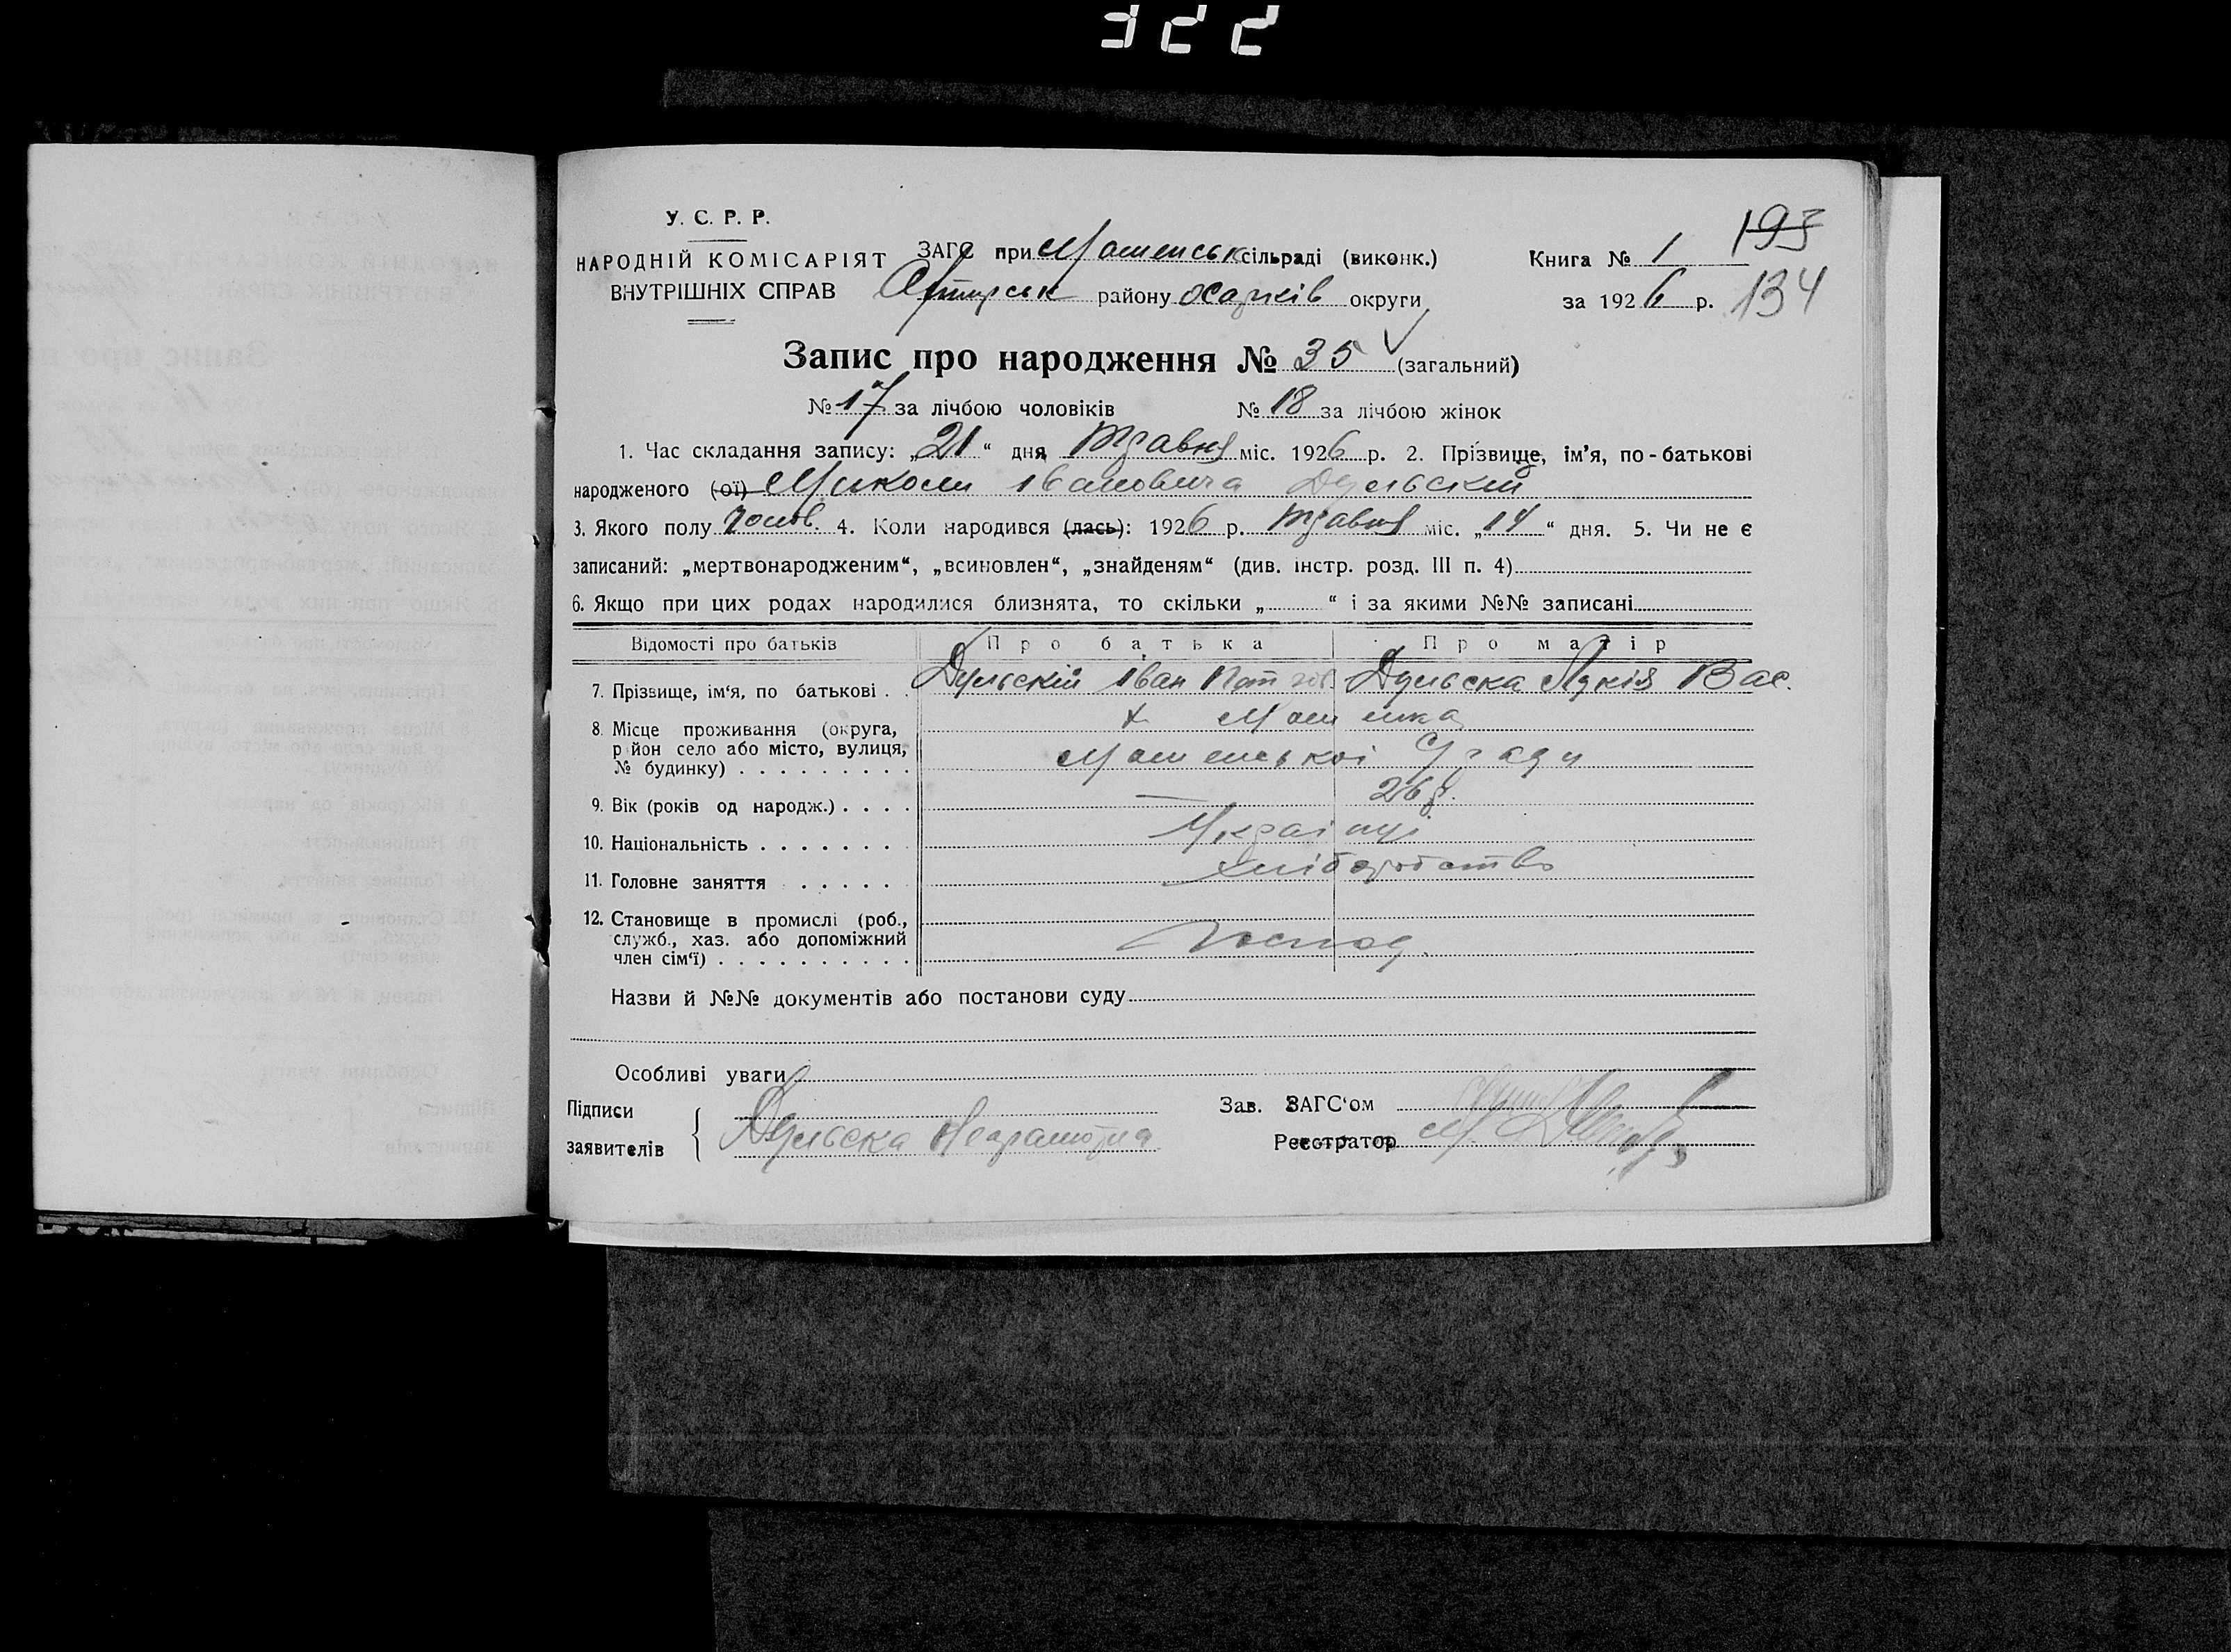 322
У. С. Р. Р.
НАРОДНІЙ КОМІСАРІЯТ
ВНУТРІШНІХ СПРАВ
ЗАГС при Машенськ сільраді (виконк.)
району Харків округи
Книга № 1
за 1926 р.
193
134
Запис про народження № 35 (загальний)
№ 17 за лічбою чоловіків № 18 за лічбою жінок
1. Час складання запису: „21“ дня Травня міс. 1926 р. 2. Прізвище, ім’я, по-батькові
народженого (ої) Миколи Івановича Дульскій
3. Якого полу Чолов. 4. Коли народився (лась): 1926 р. Травня міс. „14“ дня. 5. Чи не є
записаний: „мертвонародженим“, „всиновлен“, „знайденям“ (див. інстр. розд. III п. 4)
6. Якщо при цих родах народилися близнята, то скільки „ “ і за якими №№ записані
Відомості про батьків Про батька Про матір
7. Прізвище, ім‘я, по батькові . . Дульскій Іван Дульска Вас.
8. Місце проживання (округа,
район село або місто, вулиця,
№ будинку) . . . . . . . . .
х Машенка
Машенської С/ради
9. Вік (років од народж.) . . . . — 26 р.
10. Національність . . . . . . . Українці
11. Головне заняття . . . . . хліборобство
12. Становище в промислі (роб.,
служб., хаз. або допоміжний
член сім‘ї) . . . . . . . . . .
Господ.
Назви й №№ документів або постанови суду
Особливі уваги
Підписи
заявителів
Дульска Неграмотна
Зав. ЗАГС‘ом
Реєстратор